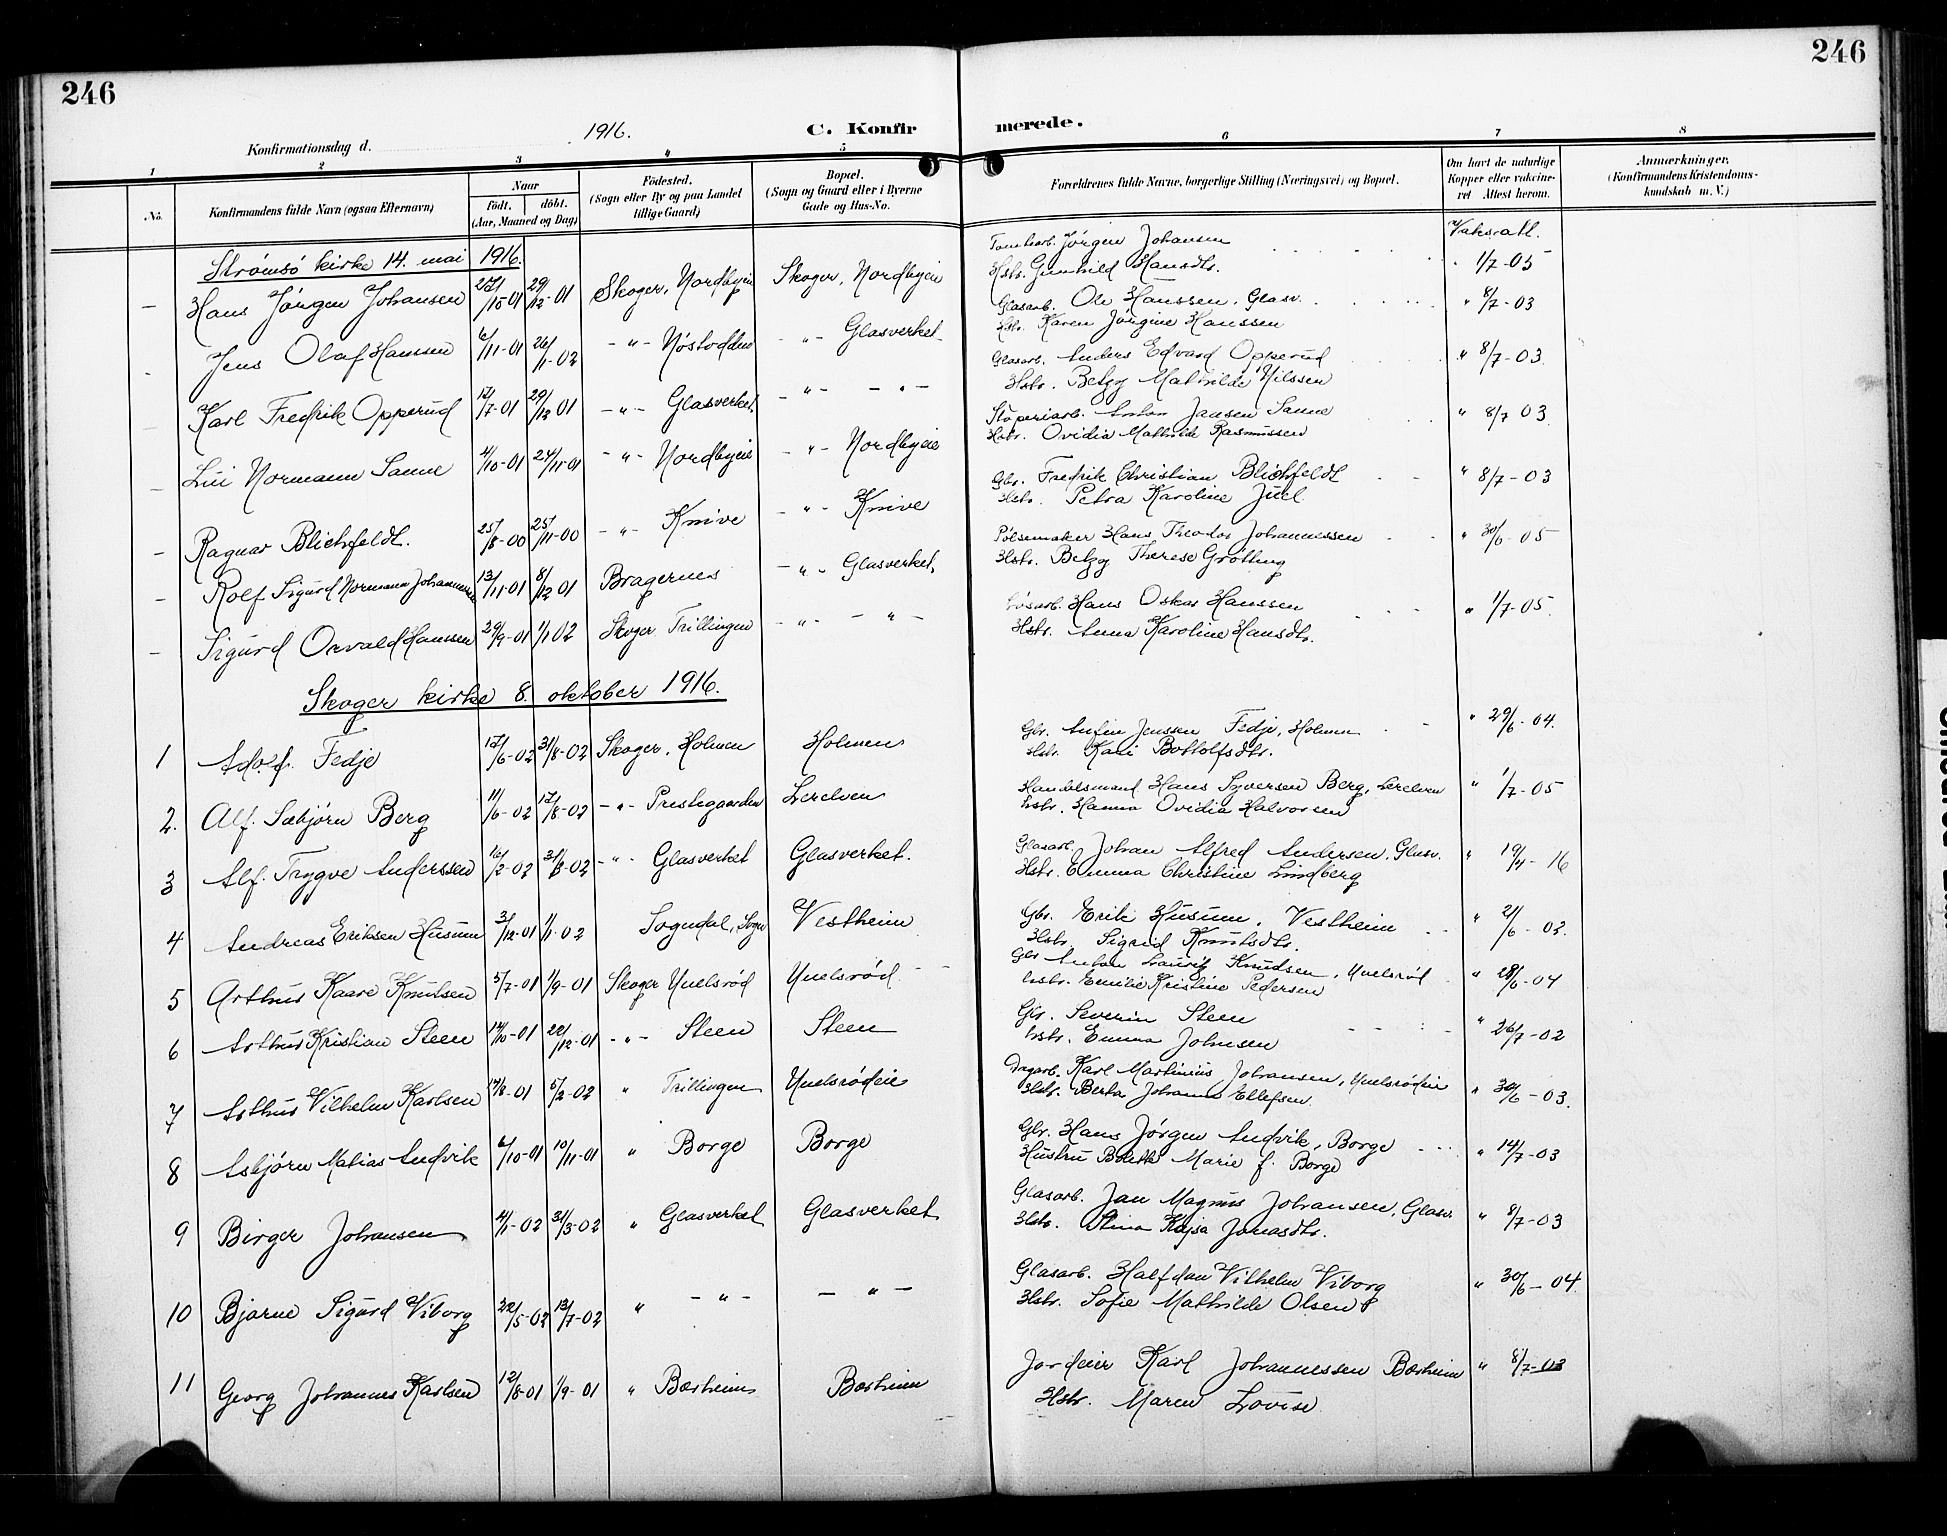 246
246
Konfirmationsdag d. 1916.
C. Konfirmerede.
1 2 3 4 5 6 7 8
No.
Konfirmandens fulde Navn (ogsaa Efternavn)
Naar
født. døbt.
(Aar, Maaned og Dag)
Fødested.
(Sogn eller By og paa Landet tillige Gaard)
Bopæl.
(Sogn og Gaard eller i Byerne Gade og Hus-No.
Forældrenes fulde Navne, borgerlige Stilling (Næringsvei) og Bopæl.
Om havt de naturlige Kopper eller vakcineret. Attest herom.
Anmerkninger.
(Konfirmandens Kristendomskundskab m. V.)
Strømsø kirke 14. mai 1916.
Vaks.att.
– Hans Jørgen Johansen 29/12-01 Skoger, Nordbyeie Skoger, Nordbyeie Jørgen Johansen
Hstr. Gunhild Hansdtr. 1/7-05
– Jens Olaf Hanssen 6/11-01 26/1-02 -„- Nøstodden -„- Glasverket Glasarb. Ole Hanssen, Glasv. „ 8/7-03
Hstr. Karen Jørgine Hanssen
– Karl Fredrik Opperud 12/7-01 29/12 01 -„- Glasverket -„- -„- Glasarb. Anders Edvard Opperud „ 8/7-03
Hstr. Betzy Mathilde Nilssen
– Lui Normann Sanne 4/10-01 24/11-01 -„- Nordbyeie -„- Nordbyeie Støperiarb. Anton Jansen Sanne „ 8/7 03
Hstr. Ovidia Mathilde Rasmussen
– Ragnar Blichfeldt. 25/8-00 25/11-00 -„- Knive -„- Knive Gbr. Fredrik Christian Blichfeldt „ 8/7-03
Hstr. Petra Karoline Juel
– Rolf Sigurd Normann Johannessen 13/11-01 8/12 01 Bragernes -„- Glasverket. Pølsemaker Hans Theodor Johannessen „ 30/6-05
Hstr. Betzy Therese Grøtting
– Sigurd Osvald Hanssen 29/9-01 1/1 02 Skoger Trillingen -„- -„- Hans Oskar Hanssen „ 1/7-05
Hstr. Anna Karoline Hansdtr.
Skoger kirke 8. oktober 1916.
1 Adolf Fedje 17/6-02 31/8-02 Skoger, Holmen Holmen Gbr. Anfin Jenssen Fedje, Holmen „ 29/6-04.
Hstr. Kari Bottolfsdtr.
2. Alf Asbjørn Berg 11/6-02 17/8-02 -„- Prestegaarden Lerelven Handelsmand Hans Syversen Berg, Lerelven „ 1/7-05
hstr. Hanna Ovidia Halvorsen
3 Alf Trygve Anderssen 16/2-02 31/3-02 -„- Glasverket Glasverket. Glasarb. Johan Alfred Andersen, Glasv. „ 19/4-16
Hstr. Emma Christine Lindberg
4 Andreas Eriksen Husum 3/12-01 1/1-02 Sogndal, Sogn Vestheim Gbr. Erik Husum, Vestheim „ 2/6-03.
Hstr. Sigrid Knutsdtr.
5 Arthur Kaare Knutsen 5/7-01 1/9-01 Skoger Unelsrød Unelsrød Gbr. Anton Lauritz Knudsen, Unelsrød „ 28/6-04
hstr. Emilie Kristine Pedersen
6 Arthur Kristian Steen 14/10-01 22/12-01 -„- Steen Steen Gbr. Severin Steen „ 26/7-02
hstr. Emma Johnsen
7 Arthur Vilhelm Karlsen 17/8-01 5/2-02 „ Trillingen Unelsrødeie Dagarb. Karl Martinius Johansen, Unelsrødeie „ 30/6-03.
Hstr. Berta Johanne Ellefsen
8 Asbjørn Matias Andvik 6/10-01 10/11-01 „ Borge Borge Gbr. Hans Jørgen Andvik, Borge „ 14/7-03
Hustru Bolette Marie f. Borge
9 Birger Johansen 4/1-02 31/3-02 „ Glasverket Glasverket Glasarb. Jan Magnus Johansen, Glasv. „ 8/7-03
Hstr. Stina Kajsa Jonasdtr.
10 Bjarne Sigurd Viborg 22/5-02 13/7-02 „ -„- -„- Glasarb. Halfdan Vilhelm Viborg „ 30/6-04
Hstr. Sofie Mathilde Olsen
11 Georg Johannes Karlsen 12/8-01 1/9-01 „ Børheim Børheim Jordeier Karl Johannessen Børheim „ 8/7-03
Hstr. Maren Lovise